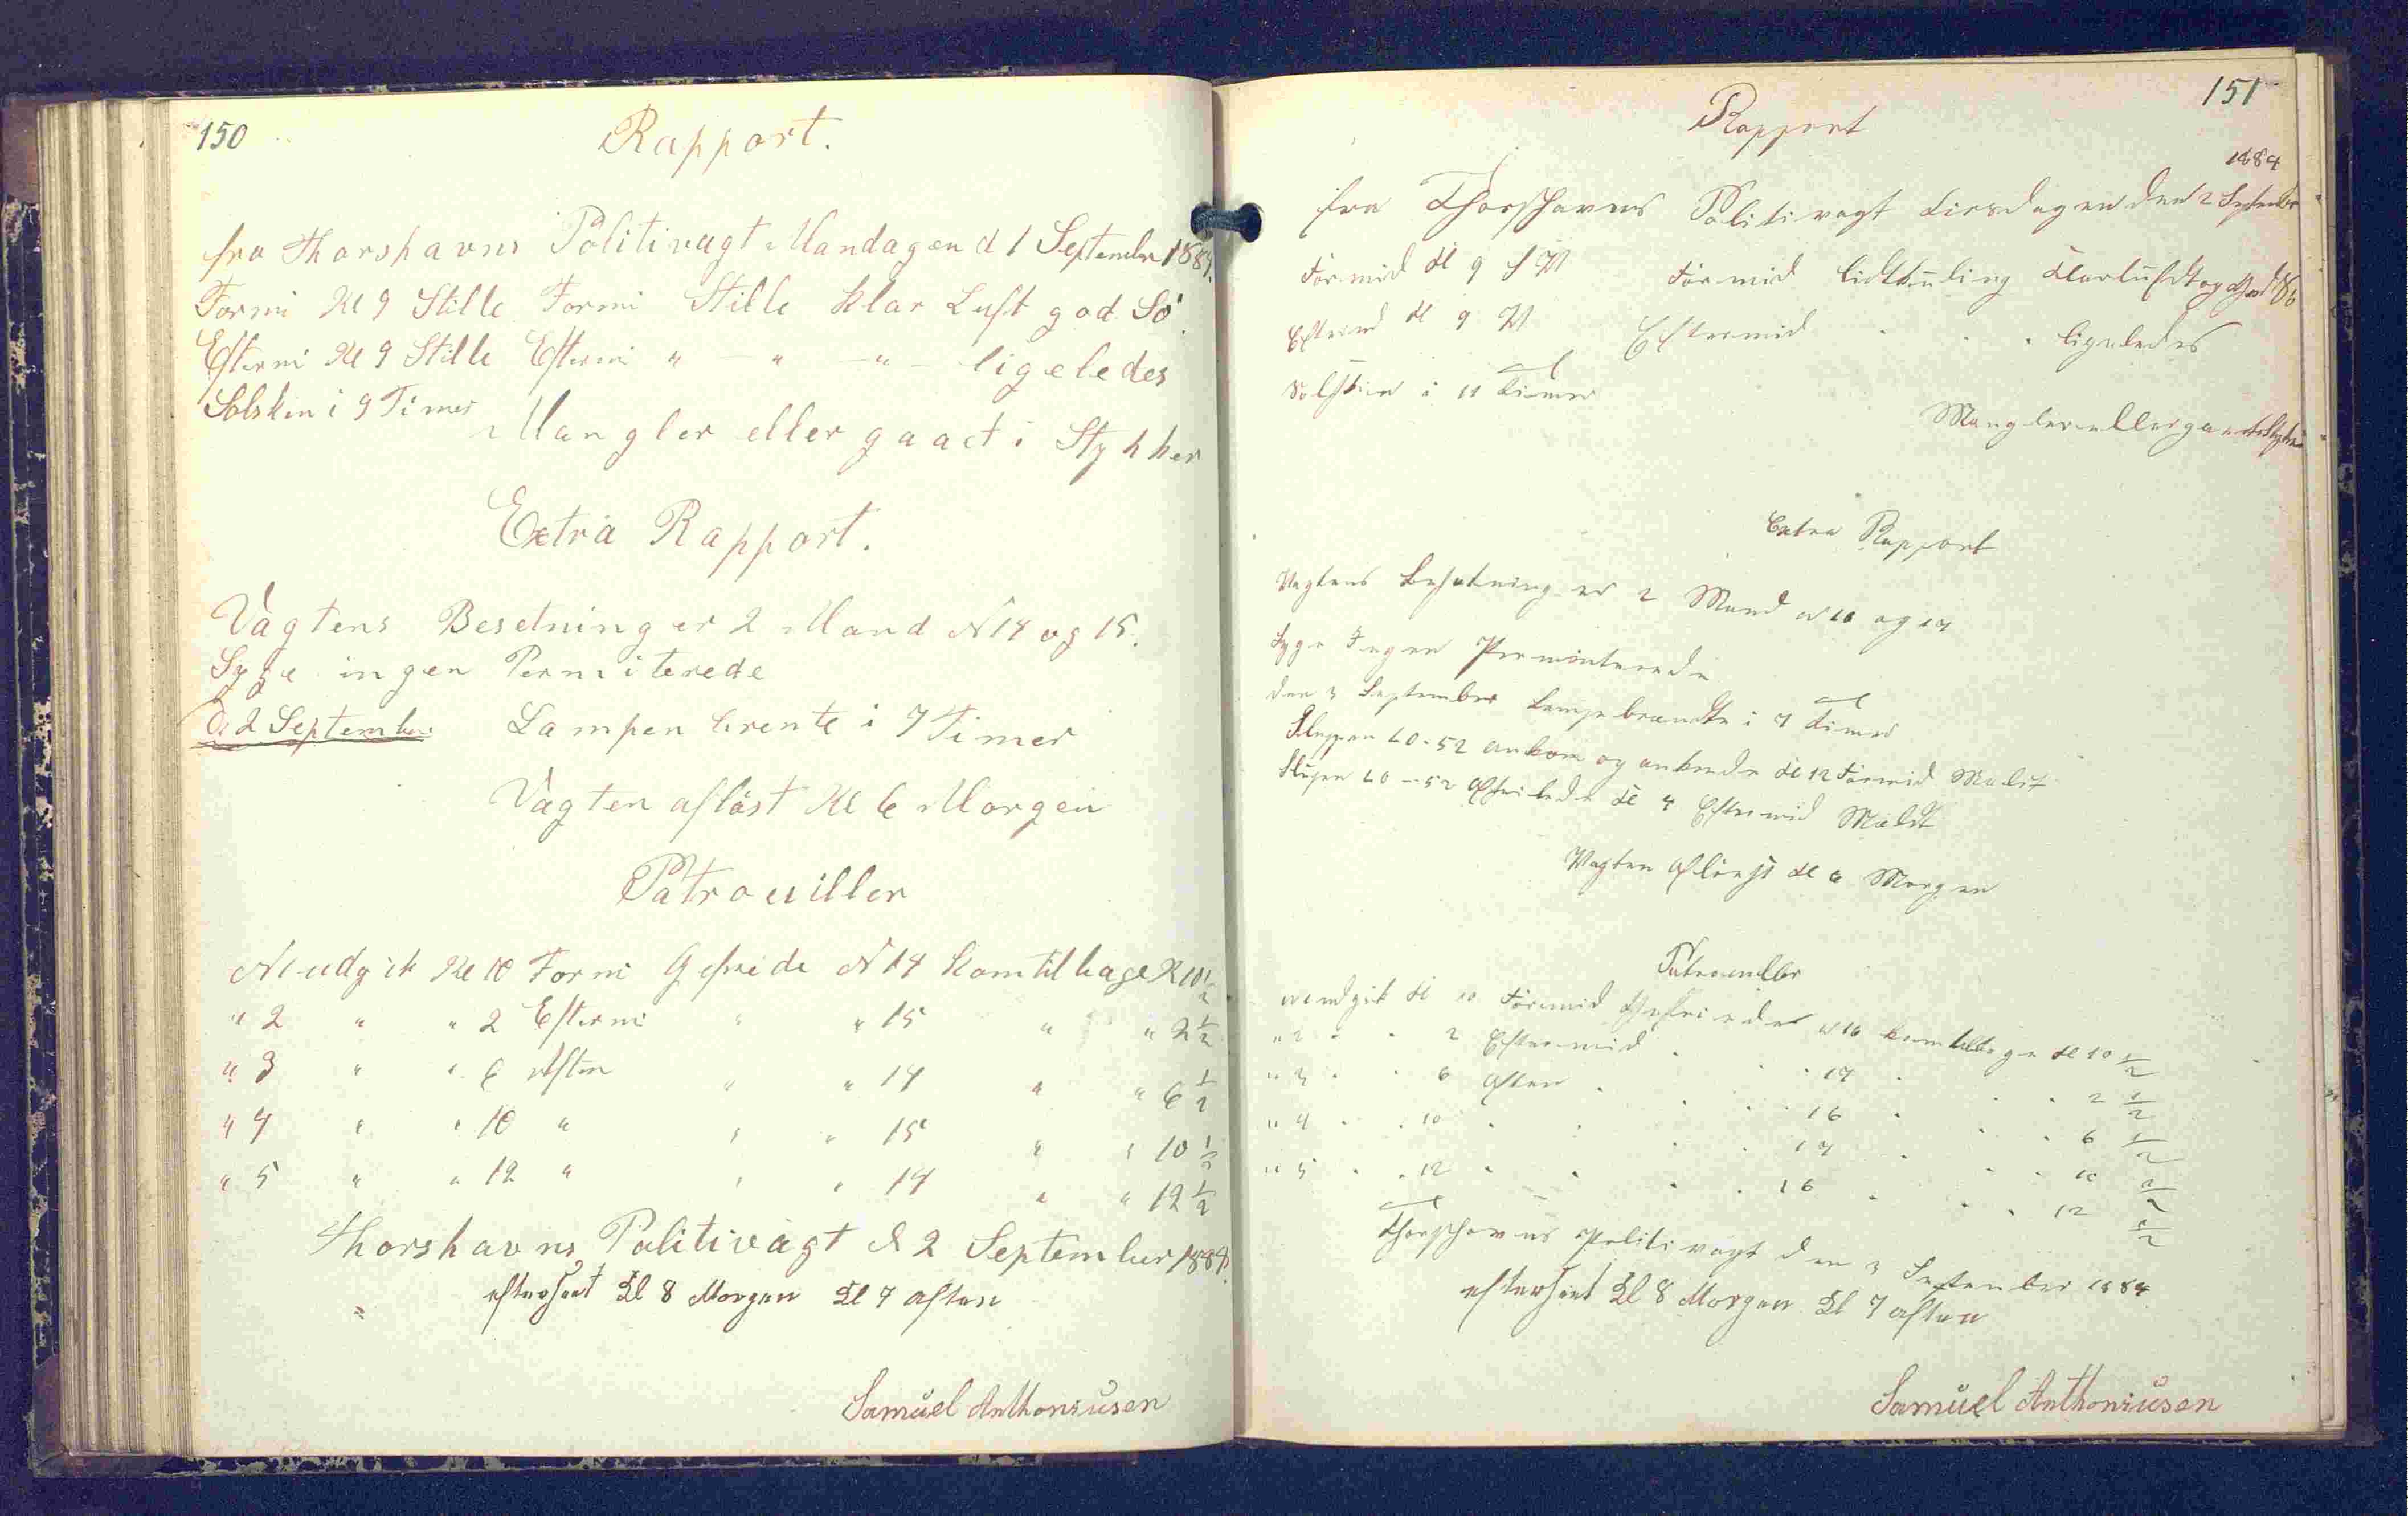 150
Rapport.
fra Thorshavns Politivagt Mandagen d 1 September 1884.
Formi Kl 9 Stille Formi Stille klar Luft god Sö
Efterm Kl 9 Stille Efterm " " " - ligeledes
Solsken i 9 Timer
Mangler eller gaaet i Stykker
Extra Rapport.
Vagtens Besetning er 2 Mand N 14 og 15.
Syge ingen Permiterede
d 2 September Lampen brente i 7 Timer
Vagten aflöst Kl 6 Morgen
Patrouiller
N 1 udgik Kl 10 Formi Gefreide N 14 kom tilbage K 10 1/2
" 2 " " 2 Efterm " " 15 " " 2 1/2
" 3 " " 6 Aften " " 14 " " 6 1/2
" 4 " " 10 " " " 15 " " 10 1/2
" 5 " " 12 " " " 14 " " 12 1/2
Thorshavns Politivagt d 2 September 1884.
efterseet Kl 8 Morgen Kl 7 aften
Samuel Anthoniusen
151
Rapport
1884
fra Thorshavns Politivagt Tirsdagen den 2 September
Formid Kl 9 S V Formid lidt Kuling Klar luft og God Sö
Eftermd Kl 9 V Eftermid . . . ligeledes
Solskin i 11 Timer
Mangler eller gaaet i Stykker
Extra Rapport
Vagtens Besetning er 2 Mand N 16 og 17
Syge Ingen Perminterede
den 3 September Lampe brændte i 7 Timer
Sluppen LO-52 ankom og ankrede Kl 12 Formid Meldt
Slupen LO-52 Afseilede Kl 4 Eftermid Meldt
Vagten Aflöest Kl 6 Morgen
Patrouiller
N 1 udgik Kl 10 Formid Gefreider N 16 kom tilbage Kl 10 1/2
" 2 . . 2 Eftermid . . 17 . . 2 1/2
" 3 . . 6 Aften . . . 16 . . 6 1/2
" 4 . . 10 . . . . 17 . . 10 1/2
" 5 . . 12 . . . . 16 . . 12 1/2
Thorshavns Politivagt den 3 September 1884
efterseet Kl 8 Morgen Kl 7 aften
Samuel Anthoniusen